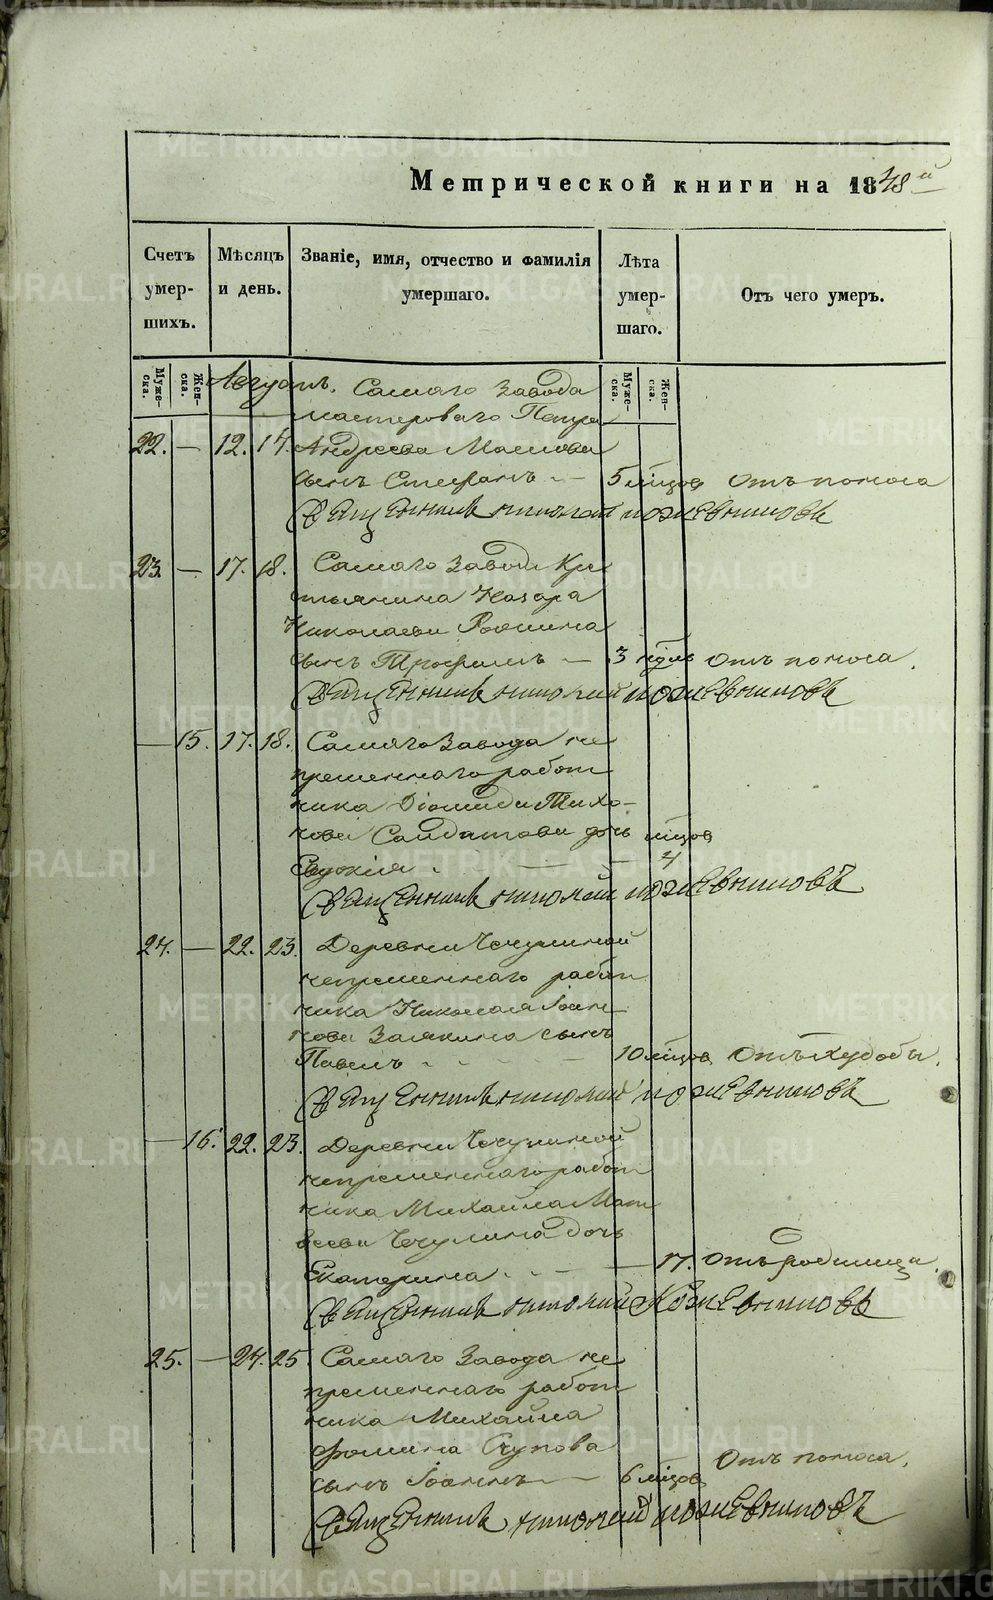 Метрической книги на 1848й
Счетъ умер- шихъ.
Мѣсяцъ и день.
Званіе, имя, отчество и фамилія умершаго.
Лѣта умер- шаго.
Отъ чего умеръ.
Муже- ска.
Жен- ска.
Муже- ска.
Жен- ска.
Августъ.
Самаго Завода
мастероваго Петра
22. — 12. 14. Андреева
сынъ Стефанъ — 5 мѣцов Отъ поноса
Священникъ Николай Кожевниковъ
23. — 17. 18. Самаго Завода Кре
стьянина Назара
Николаева
сынъ Трофимъ — 3 Отъ поноса.
Священникъ Николай Кожевниковъ
— 15. 17. 18. Самаго Завода не
премѣннаго работ
ника Діомида Тихо-
нова Солдатова дочь мѣцов
Евдокія — 4
Священникъ Николай Кожевниковъ
24. — 22. 23. Деревни Чечулиной
непремѣннаго работ
ника Николая Іоан
нова Заякина сынъ
Павелъ — 10 мѣцов Отъ худобы.
Священникъ Николай Кожевниковъ
— 16. 22. 23. Деревни Чечулиной
непремѣннаго работ
ника Михайла Мат
веева Чечулина дочь
Екатерина — 17. Отъ родимца.
Священникъ Николай Кожевниковъ
25. — 24. 25 Самаго Завода не
премѣннаго работ
ника Михайла
Фомина
сынъ Іоаннъ — 6 мѣцов Отъ поноса.
Священникъ Николай Кожевниковъ
METRIKI.GASO-URAL.RU